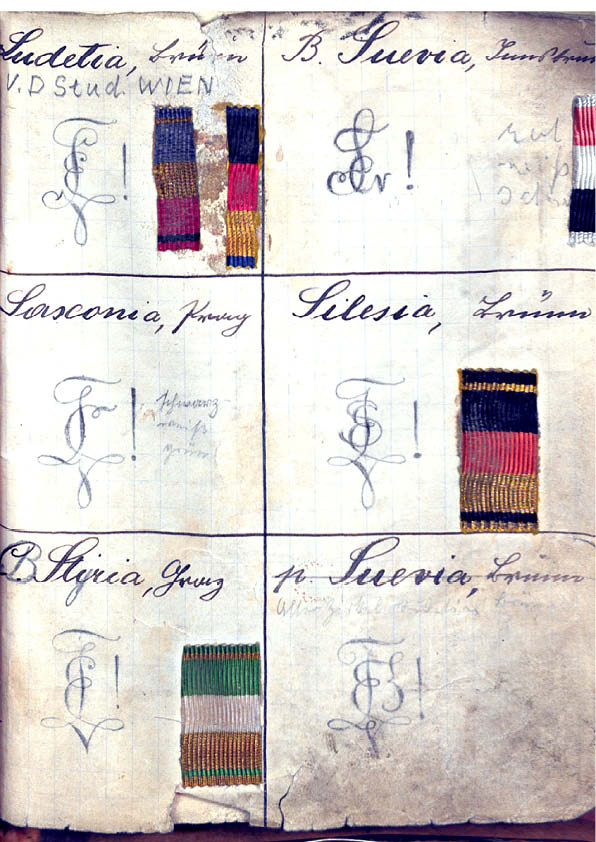 Sudetia, Brünn
V. D Stud. WIEN
B. Suevia, Innsbruck
rot
weiß
Saxonia, Prag
schwarz
weiß
grün
Silesia, Brünn
B. Styria, Graz
p. Suevia, Brünn